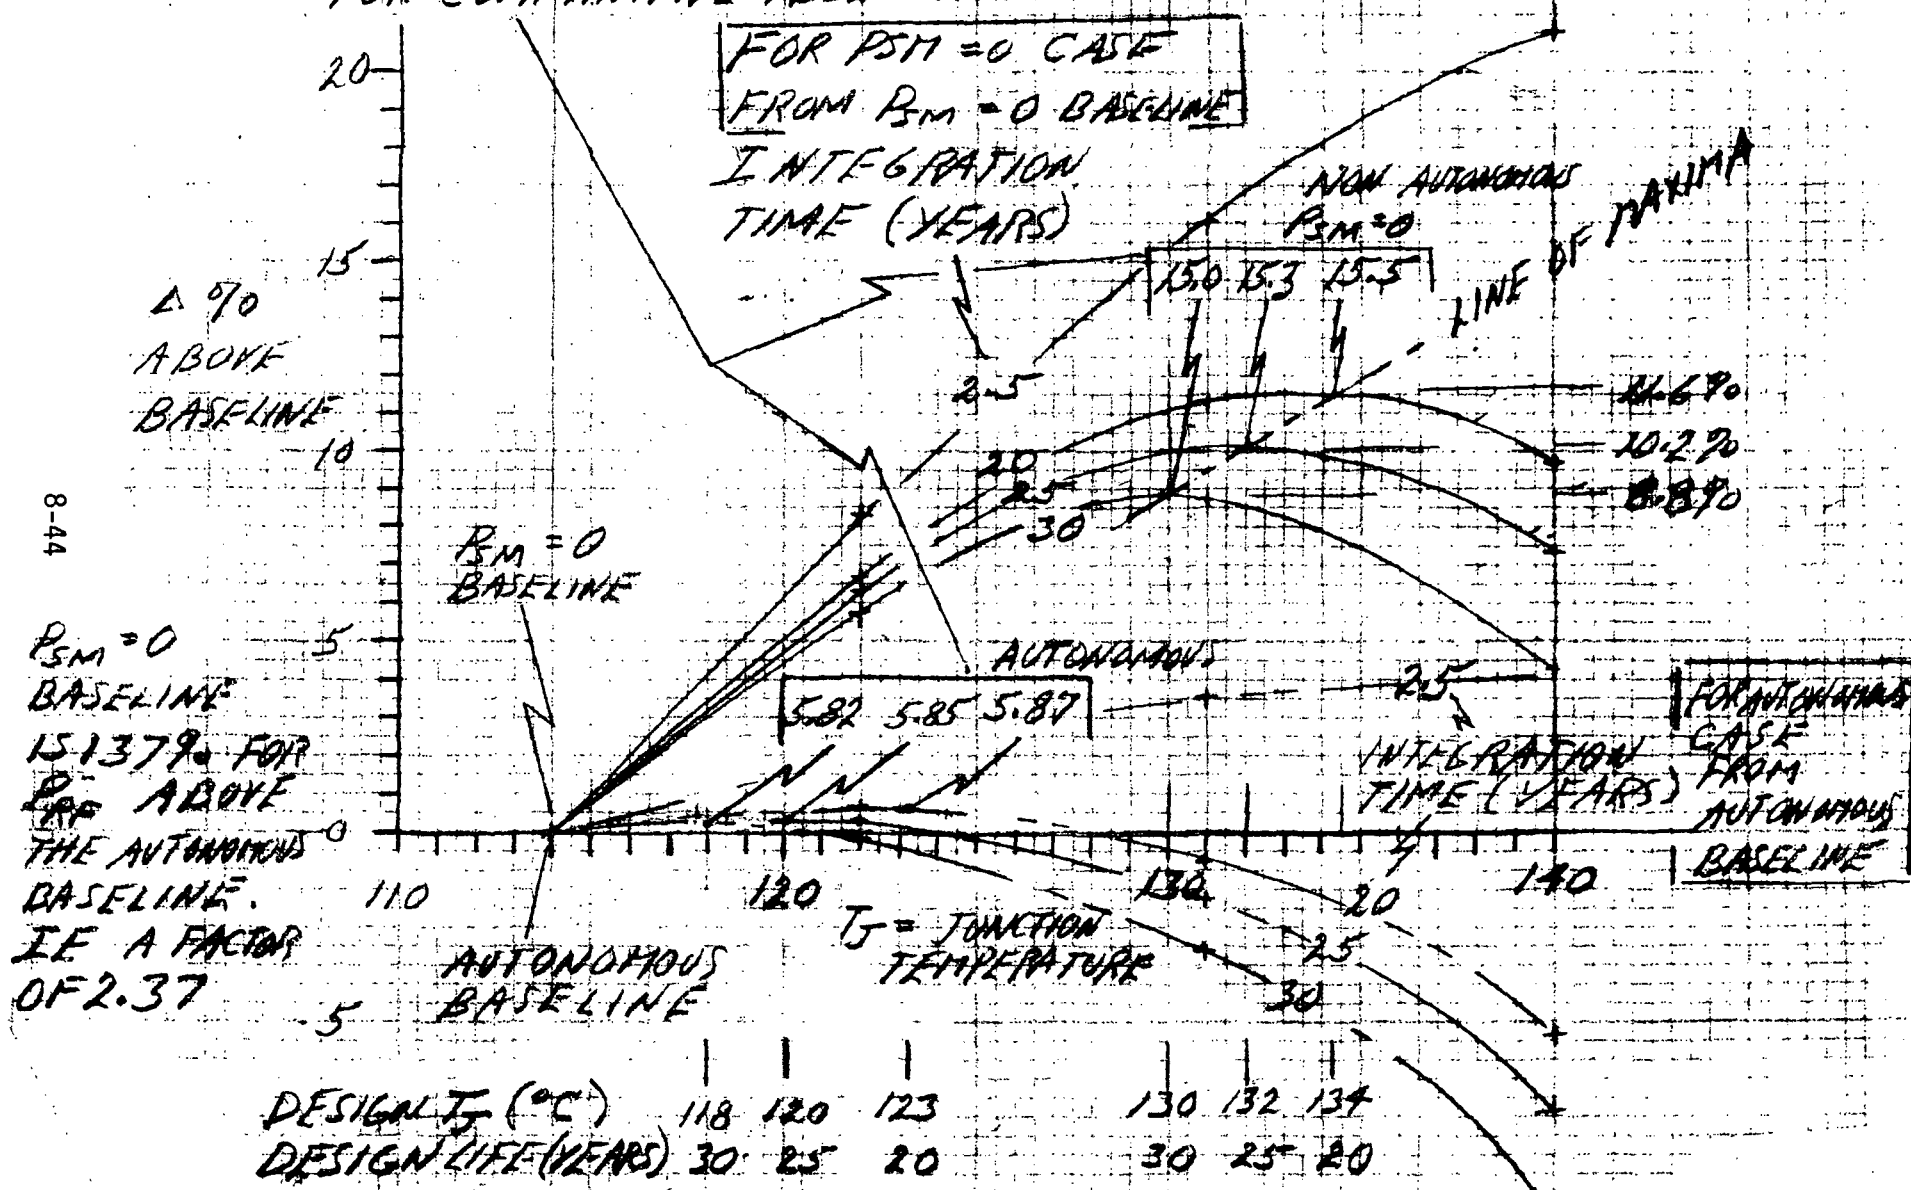 FOR PSM = 0 CASE
FROM PSM = 0 BASELINE
INTEGRATION
TIME (YEARS)
NON AUTONOMOUS
PSM = 0
15.0 15.3 15.5
LINE OF MAXIMA
20
15
10
5
0
-5
Δ %
ABOVE
BASELINE
2.5
20
25
30
11.6%
10.2%
8.8%
8-44
PSM = 0
BASELINE
PSM = 0
BASELINE
IS 137% FOR
PRF ABOVE
THE AUTONOMOUS
BASELINE.
IE A FACTOR
OF 2.37
AUTONOMOUS
5.82 5.85 5.87
2.5
INTEGRATION
TIME (YEARS)
FOR AUTONOMOUS
CASE
FROM
AUTONOMOUS
BASELINE
110 120 130 140
TJ = JUNCTION
TEMPERATURE
20
25
30
AUTONOMOUS
BASELINE
DESIGN TJ (°C) 118 120 123 130 132 134
DESIGN LIFE (YEARS) 30 25 20 30 25 20